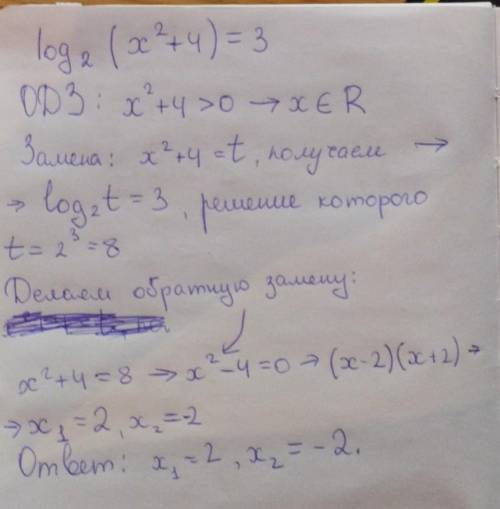 log₂(x²+4)=3
ОДЗ: x²+4>0 → x∈R
Замена: x²+4=t, получаем →
→ log₂t=3, решение которого
t=2³=8
Делаем обратную замену:
x²+4=8 → x²-4=0 → (x-2)(x+2) →
→ x₁=2, x₂=-2
Ответ: x₁=2, x₂=-2.